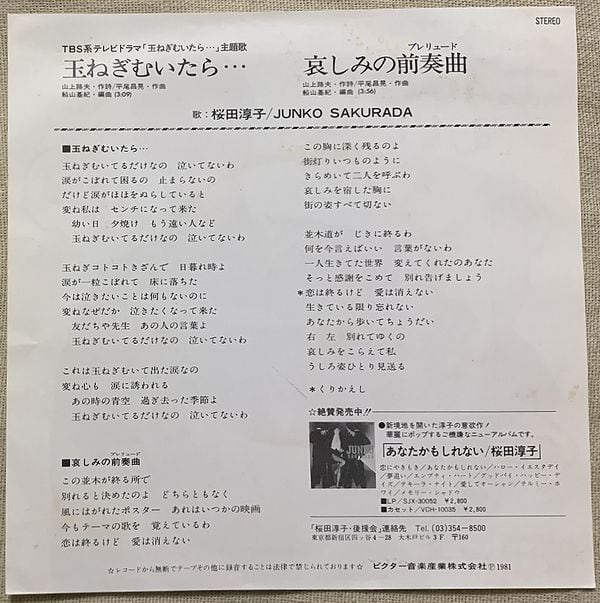 STEREO
TBS系テレビドラマ「玉ねぎむいたら…」主題歌
玉ねぎむいたら…
山上路夫・作詩/平尾昌晃・作曲
船山基紀・編曲 (3:09)
プレリュード
哀しみの前奏曲
山上路夫・作詩/平尾昌晃・作曲
船山基紀・編曲 (3:56)
歌:桜田淳子/JUNKO SAKURADA
■玉ねぎむいたら…
玉ねぎむいてるだけなの 泣いてないわ
涙がこぼれて困るの 止まらないの
だけど涙がほほをぬらしていると
変ね私は センチになって来た
幼い日 夕焼け もう遠い人など
玉ねぎむいてるだけなの 泣いてないわ
玉ねぎコトコトきざんで 日暮れ時よ
涙が一粒こぼれて 床に落ちた
今は泣きたいことは何もないのに
変ねなぜだか 泣きたくなって来た
友だちや先生 あの人の言葉よ
玉ねぎむいてるだけなの 泣いてないわ
これは玉ねぎむいて出た涙なの
変ね心も 涙に誘われる
あの時の青空 過ぎ去った季節よ
玉ねぎむいてるだけなの 泣いてないわ
プレリュード
■哀しみの前奏曲
この並木が終る所で
別れると決めたのよ どちらともなく
風にはがれたポスター あれはいつかの映画
今もテーマの歌を 覚えているわ
恋は終るけど 愛は消えない
この胸に深く残るのよ
街灯りいつものように
きらめいて二人を呼ぶわ
哀しみを宿した胸に
街の姿すべて切ない
並木道が じきに終るわ
何を今言えばいい 言葉がないわ
一人生きてた世界 変えてくれたのあなた
そっと感謝をこめて 別れ告げましょう
*恋は終るけど 愛は消えない
生きている限り忘れない
あなたから歩いてちょうだい
右 左 別れてゆくの
哀しみをこらえて私
うしろ姿ひとり見送る
*くりかえし
☆絶賛発売中!!
●新境地を開いた淳子の意欲作!
華麗にポップするご機嫌なニューアルバムです。
あなたかもしれない/桜田淳子
恋にやきもき/あなたかもしれない/ハロー・イエスタデイ
/夢追い/エンプティ・ハート/グッドバイ・ハッピー・デ
イズ/テキーラ・ナイト/愛してオーシャン/テルミー・ホ
ワイ/メモリー・シャドウ
■LP/SJX-30052 ¥2,800
■カセット/VCH-10035 ¥2,800
「桜田淳子・後援会」連絡先 Tel. (03)354-8500
東京都新宿区四ッ谷4-28 大木戸ビル3F 〒160
☆レコードから無断でテープその他に録音することは法律で禁じられております☆
ビクター音楽産業株式会社Ⓟ1981